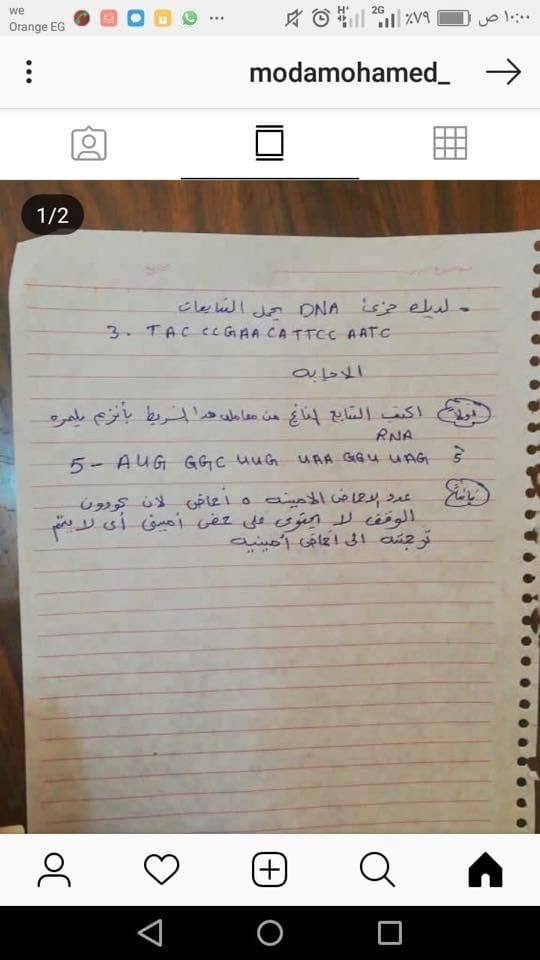 we
Orange EG
H+
2G
٪٧٩
١٠:٠٠ ص
modamohamed_
1/2
- لديك جزئ DNA يحمل التتابعات
3. TAC CCGAACATTCC AATC
الاجابه
اولا اكتب التتابع الناتج من معامله هذا الشريط بأنزيم بلمره
RNA
5 - AUG GGC UUG UAA GGU UAG 3
ثانيا عدد الاحماض الامينه ٥ أحماض لان كودون
الوقف لا يحتوى على حمض أمينى أى لا يتم
ترجمته الى احماض أمينيه